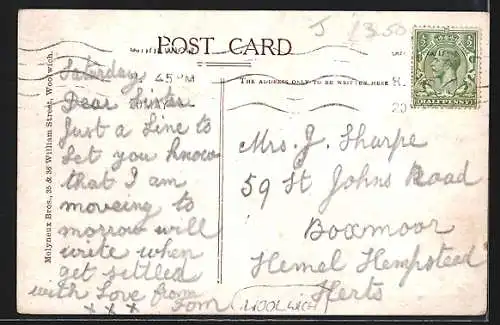 J 13.50
POST CARD
THE ADDRESS ONLY TO BE WRITTEN HERE
HALFPENNY
45 PM
Molyneux Bros., 35 & 36 William Street, Woolwich.
Saturday
Dear Sister
Just a Line to
Let you Know
that I am
moveing to
morrow will
write when
get settled
with Love from
Tom
x x x
Mrs. J. Sharpe
59 St Johns Road
Boxmoor
Hemel Hempstead
Herts
WOOLWICH